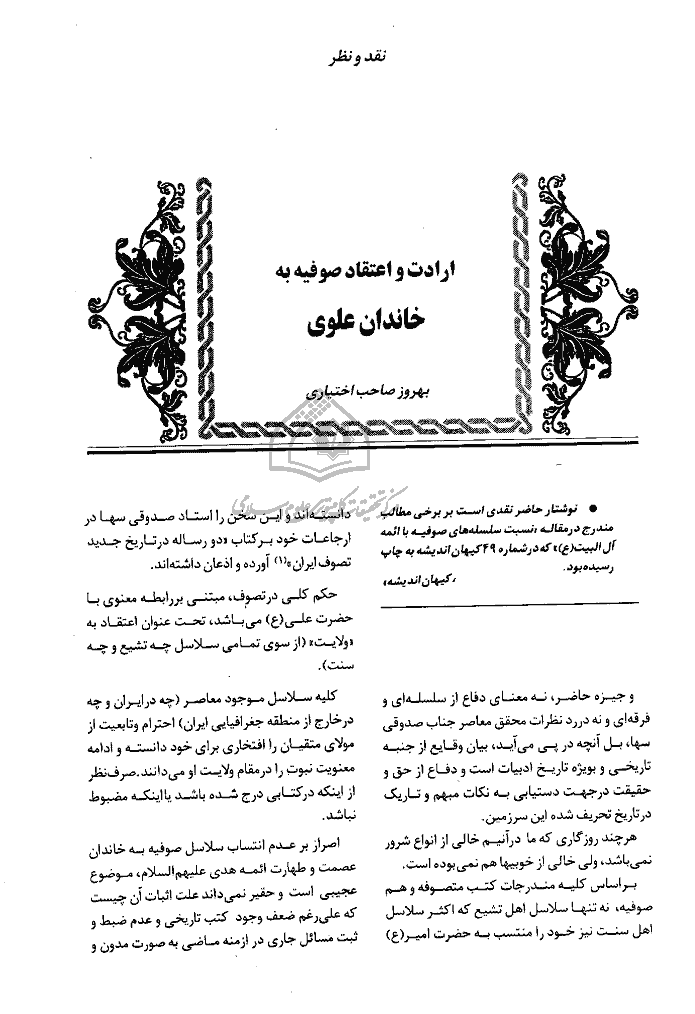 نقد و نظر
ارادت و اعتقاد صوفیه به
خاندان علوی
بهروز صاحب اختیاری
● نوشتار حاضر نقدی است بر برخی مطالب
مندرج در مقاله «نسبت سلسله‌های صوفیه با ائمه
آل البیت(ع)» که در شماره ۴۹ کیهان اندیشه به چاپ
رسیده بود.
«کیهان اندیشه»
و جیزه حاضر، نه معنای دفاع از سلسله‌ای و
فرقه‌ای و نه در رد نظرات محقق معاصر جناب صدوقی
سها، بل آنچه در پی می‌آید، بیان وقایع از جنبه
تاریخی و بویژه تاریخ ادبیات است و دفاع از حق و
حقیقت در جهت دستیابی به نکات مبهم و تاریک
در تاریخ تحریف شده این سرزمین.
هر چند روزگاری که ما در آنیم خالی از انواع شرور
نمی‌باشد، ولی خالی از خوبیها هم نمی‌بوده است.
براساس کلیه مندرجات کتب متصوفه و هم
صوفیه، نه تنها سلاسل اهل تشیع که اکثر سلاسل
اهل سنت نیز خود را منتسب به حضرت امیر(ع)
دانسته‌اند و این سخن را استاد صدوقی سها در
ارجاعات خود بر کتاب «دو رساله در تاریخ جدید
تصوف ایران»(۱) آورده و اذعان داشته‌اند.
حکم کلی در تصوف، مبتنی بر رابطه معنوی با
حضرت علی(ع) می‌باشد، تحت عنوان اعتقاد به
«ولایت» (از سوی تمامی سلاسل چه تشیع و چه
سنت).
کلیه سلاسل موجود معاصر (چه در ایران و چه
در خارج از منطقه جغرافیایی ایران) احترام و تابعیت از
مولای متقیان را افتخاری برای خود دانسته و ادامه
معنویت نبوت را در مقام ولایت او می‌دانند. صرف‌نظر
از اینکه در کتابی درج شده باشد یا اینکه مضبوط
نباشد.
اصراز بر عدم انتساب سلاسل صوفیه به خاندان
عصمت و طهارت ائمه هدی علیهم‌السلام، موضوع
عجیبی است و حقیر نمی‌داند علت اثبات آن چیست
که علی‌رغم ضعف وجود کتب تاریخی و عدم ضبط و
ثبت مسائل جاری در ازمنه ماضی به صورت مدون و